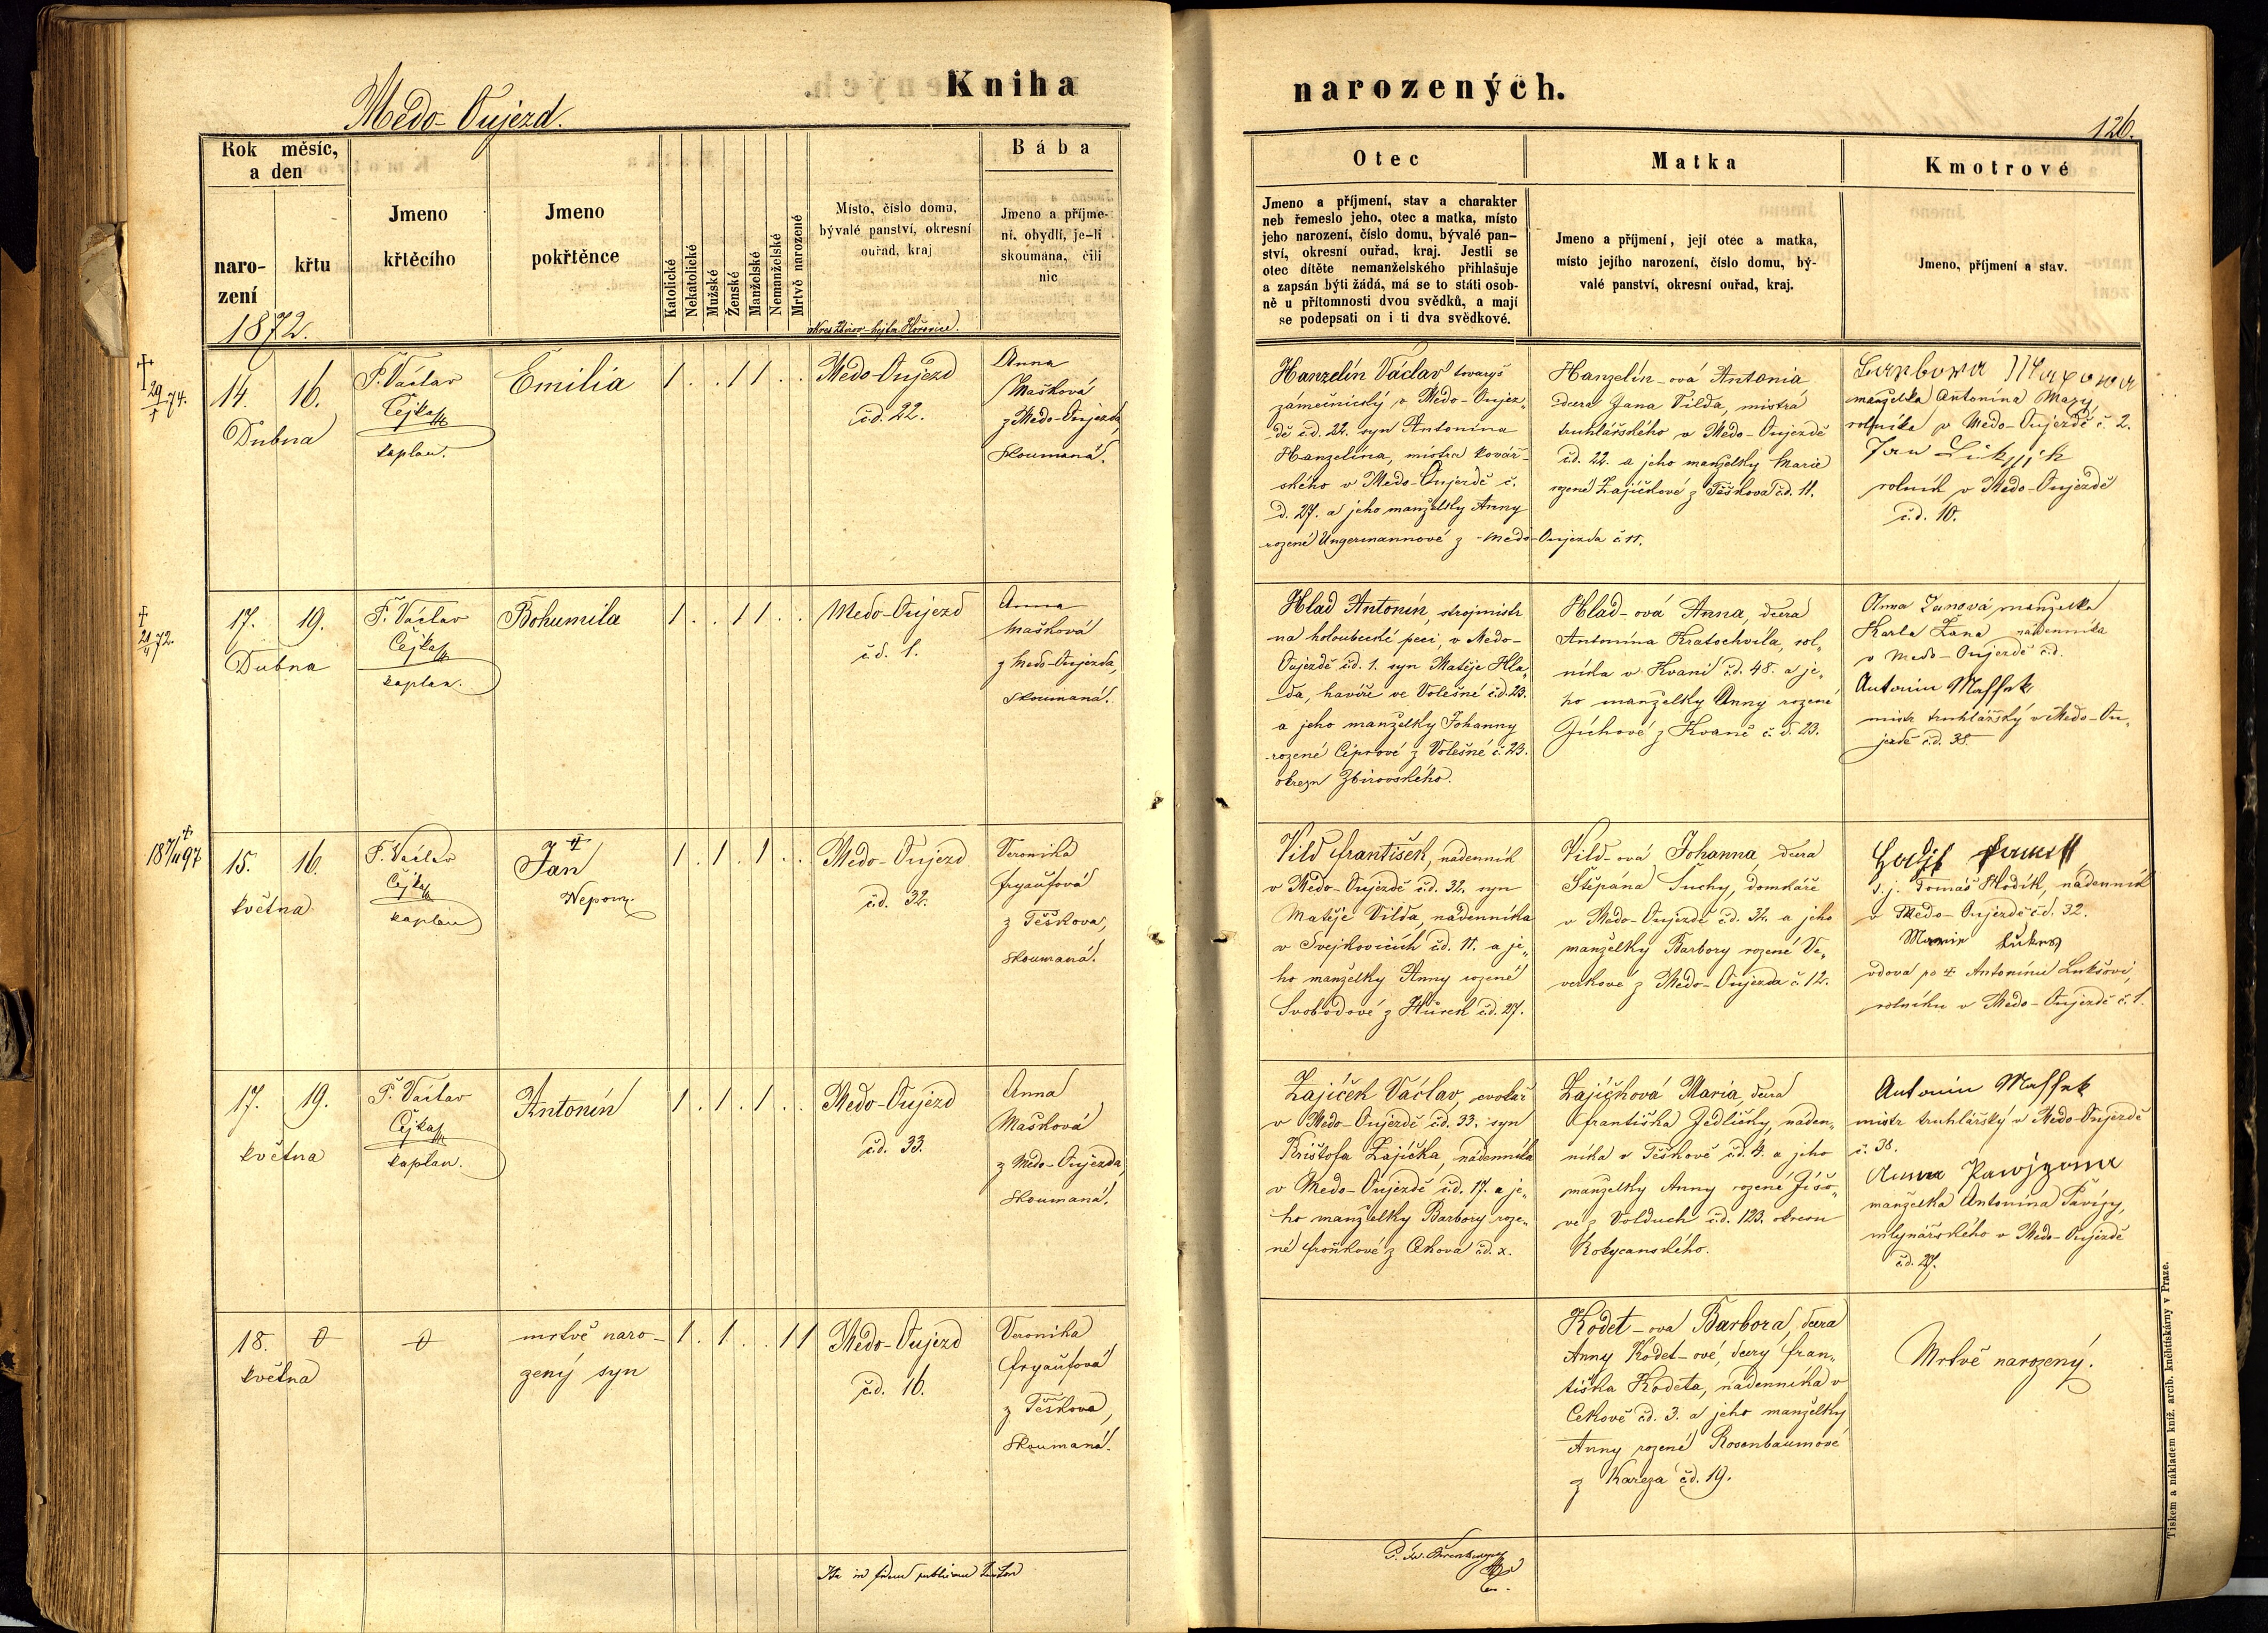 Kniha
narozených.
Medo-Oujezd.
126.
Rok měsíc,
a den
naro-
zení
křtu
1872.
Jmeno
křtěcího
Jmeno
pokřtěnce
Katolické
Nekatolické
Mužské
Ženské
Manželské
Nemanželské
Mrtvě narozené
Místo, číslo domu,
bývalé panství, okresní
ouřad, kraj
okres Zbirov hejtm. Hořovice.
Bába
Jmeno a příjme-
ní, obydlí, je-li
skoumána, čili
nic
Otec
Jmeno a příjmení, stav a charakter
neb řemeslo jeho, otec a matka, místo
jeho narození, číslo domu, bývalé pan-
ství, okresní ouřad, kraj. Jestli se
otec dítěte nemanželského přihlašuje
a zapsán býti žádá, má se to státi osob-
ně u přítomnosti dvou svědků, a mají
se podepsati on i ti dva svědkové.
Matka
Jmeno a příjmení, její otec a matka,
místo jejího narození, číslo domu, bý-
valé panství, okresní ouřad, kraj.
Kmotrové
Jmeno, příjmení a stav.
† 29/1 74.
14. 16.
Dubna
P. Václav
Čejka
kaplan.
Emilia
1 . . 1 1 . .
Medo-Oujezd
č.d. 22.
Anna
Mašková
z Medo-Oujezda,
skoumaná.
Hanzelín Václav tovaryš
zámečnický v Medo-Oujez„
dě č.d. 22. syn Antonína
Hanzelína, mistra kovář-
ského v Medo-Oujezdě č.
d. 27. a jeho manželky Anny
rozené Ungermannové z Medo-Oujezda č. 11.
Hanzelín-ová Antonia
dcera Jana Vilda, mistra
truhlářského v Medo-Oujezdě
č.d. 22. a jeho manželky Marie
rozené Zajíčkové z Těškova č.d. 11.
manželka Antonína Maxy,
rolníka v Medo-Oujezdě č. 2.
Jan
rolník v Medo-Oujezdě
č.d. 10.
† 21/4 72.
17. 19.
Dubna
P. Václav
Čejka
kaplan.
Bohumila
1 . . 1 1 . .
Medo-Oujezd
č.d. 1.
Anna
Mašková
z Medo-Oujezda,
skoumaná.
Hlad Antonín, strojmistr
na holoubecké peci, v Medo-
Oujezdě č.d. 1. syn Matěje Hla„
da, havíře ve Volešné č.d. 23.
a jeho manželky Johanny
rozené Ciprové z Volešné č. 23.
okresu Zbirovského.
Hlad-ová Anna, dcera
Antonína Kratochvíla, rol„
níka v Kvani č.d. 48. a je„
ho manželky Anny rozené
Jíchové z Kvaně č.d. 23.
Anna Zanová, manželka
Karla Zana nádenníka
v Medo-Oujezdě č.d.
Antonin Maššek
mistr truhlářský v Medo-Ou„
jezdě č.d. 38.
† 18 7/11 97
15. 16.
května
P. Václav
Čejka
kaplan
Jan
Nepom.
1 . 1 . 1 . .
Medo-Oujezd
č.d. 32.
Veronika
Fryaufová
z Těškova,
skoumaná.
Vild František, nádenník
v Medo-Oujezdě č.d. 32. syn
Matěje Vilda, nádenníka
v Svejkovicích č.d. 11. a je„
ho manželky Anny rozené
Svobodové z Hůrek č.d. 27.
Vild-ová Johanna, dcera
Štěpána Suchy, domkáře
v Medo-Oujezdě č.d. 32. a jeho
manželky Barbory rozené Ve„
verkové z Medo-Oujezda č. 12.
t. j. Tomáš Hodík, nádenník
v Medo-Oujezdě č.d. 32.
Marie Lukes
vdova po † Antonínu Lukšovi,
rolníku v Medo-Oujezdě č. 1.
17. 19.
května
P. Václav
Čejka
kaplan.
Antonín
1 . 1 . 1 . .
Medo-Oujezd
č.d. 33.
Anna
Mašková
z Medo-Oujezda,
skoumaná.
Zajíček Václav, cvokař
v Medo-Oujezdě č.d. 33. syn
Krištofa Zajíčka, nádenníka
v Medo-Oujezdě č.d. 17. a je„
ho manželky Barbory roze„
né Froňkové z Cekova č.d. x.
Zajíčková Maria, dcera
Františka Jedličky, náden„
níka v Těškově č.d. 4. a jeho
manželky Anny rozené Jíšo„
vé z Volduch č.d. 123. okresu
Rokycanského.
Antonin Maššek
mistr truhlářský v Medo-Oujezdě
č. 38.
Anna
manželka Antonína Pavízy,
mlynářského v Medo-Oujezdě
č.d. 27.
18. 0
května
0
mrtvě naro-
zený syn
1 . 1 . . 1 1
Medo-Oujezd
č.d. 16.
Veronika
Fryaufová
z Těškova,
skoumaná.
Kodet-ova Barbora, dcera
Anny Kodet-ové, dcery Fran„
tiška Kodeta, nádenníka v
Cekově č.d. 3. a jeho manželky
Anny rozené Rosenbaumové
z Kařeza č.d. 19.
Mrtvě narozený.
Ita in fidem publicam testor
Tiskem a nákladem kníž. arcib. kněhtiskárny v Praze.